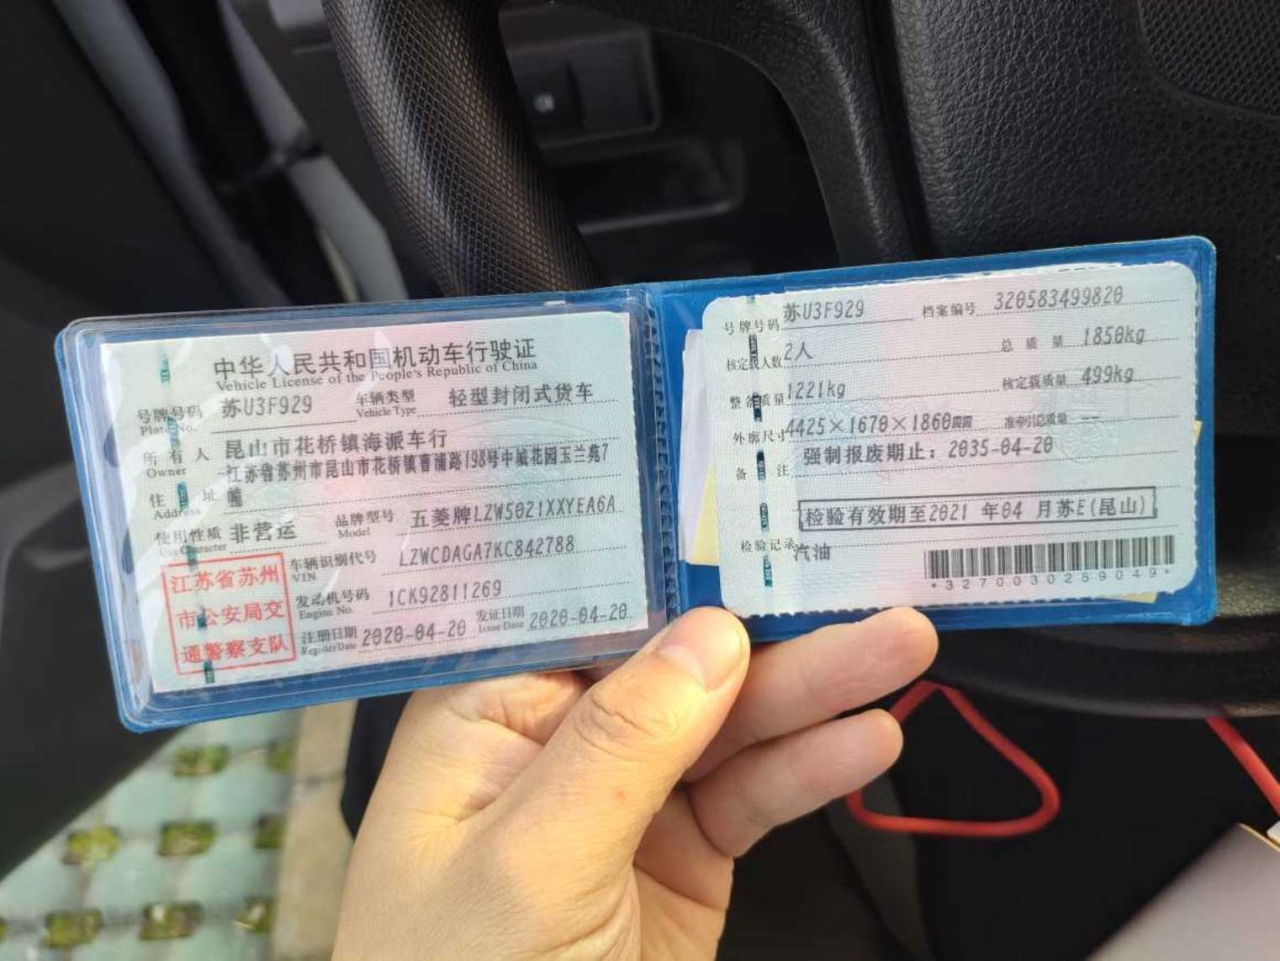 中华人民共和国机动车行驶证
Vehicle License of the People's Republic of China
号牌号码 苏U3F929 车辆类型 轻型封闭式货车
Plate No. Vehicle Type
所有人 昆山市花桥镇海派车行
Owner
住址 江苏省苏州市昆山市花桥镇曹浦路198号中城花园玉兰苑7
Address 幢
使用性质 非营运 品牌型号 五菱牌LZW5021XXYEA6A
Use Character Model
江苏省苏州
市公安局交
通警察支队
车辆识别代号 LZWCDAGA7KC842788
VIN
发动机号码 1CK92811269
Engine No.
注册日期 2020-04-20 发证日期 2020-04-20
Register Date Issue Date
号牌号码 苏U3F929 档案编号 320583499820
核定载人数 2人 总质量 1850kg
整备质量 1221kg 核定载质量 499kg
外廓尺寸 4425×1670×1860mm 准牵引总质量 --
备注 强制报废期止：2035-04-20
检验有效期至2021 年04 月苏E(昆山)
检验记录 汽油
*3270030259049*